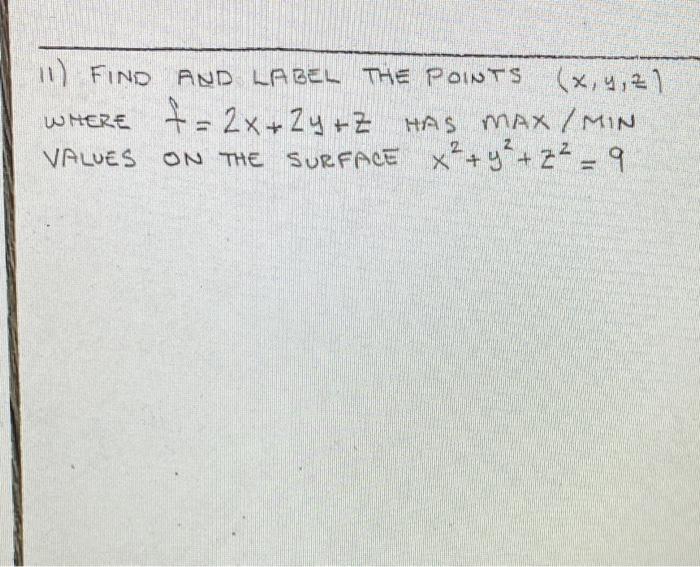 11) FIND AND LABEL THE POINTS (x, y, z)
WHERE f = 2x + 2y + z HAS MAX / MIN
VALUES ON THE SURFACE x² + y² + z² = 9